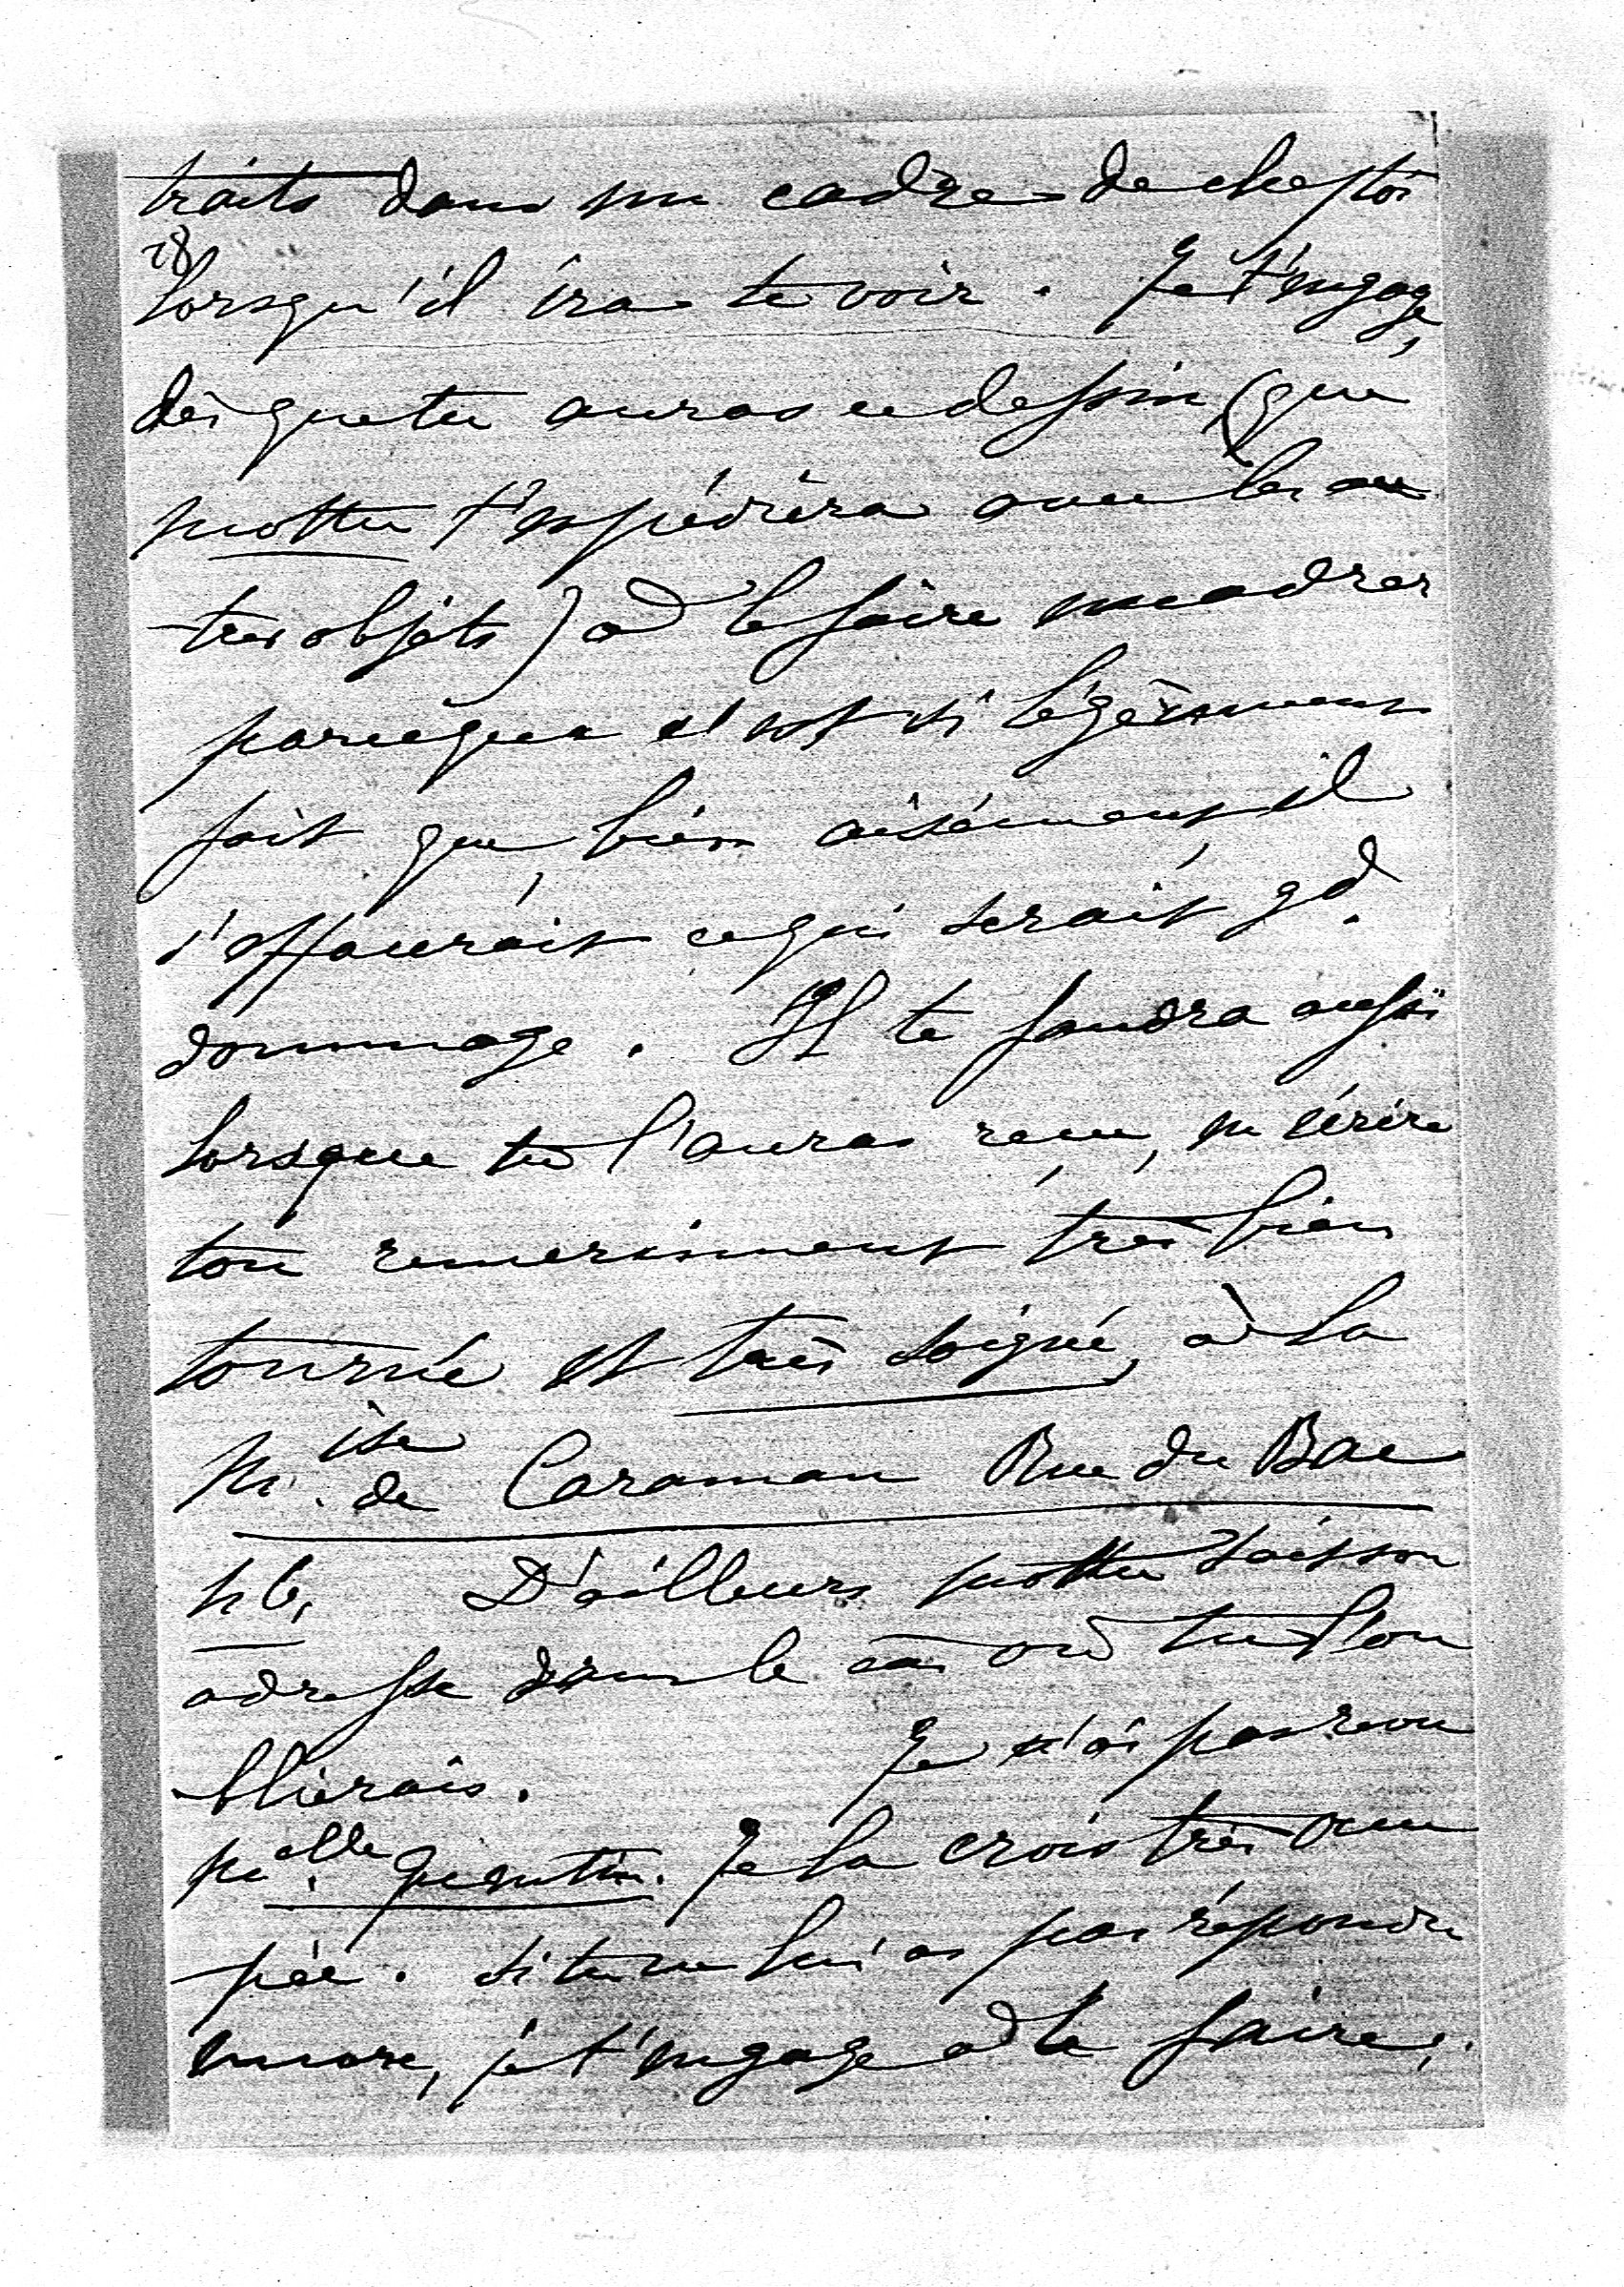 traits dans un cadre de chez toi
28
lorsqu'il ira te voir. Je t'engage,
dès que tu auras ce dessin, (que
Mottu t'expédiera avec les au
tres objets) à le faire encadrer
parceque c'est si légèrement
fait que, bien aisément, il
s'effacerait ce qui serait gd.
dommage. Il te faudra aussi
lorsque tu l'auras reçu, m'écrire
ton remerciment très bien
tourné et très soigné, à la
Mise de Caraman Rue du Bac
D'ailleurs Mottu sait son
adresse dans le cas où tu l'ou
blierais. Je n'ai pas revu
Melle Quentin. Je la crois très occu
pée. Si tu ne lui as pas répondu
encore, je t'engage à le faire,